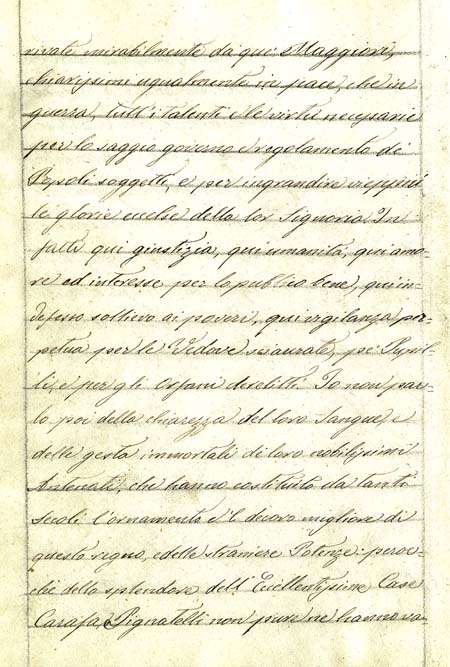 rivate mirabilmente da que' Maggiori,
chiarissimi ugualmente in pace, che in
guerra, tutt'i talenti e le virtù necessarie
per lo saggio governo e regolamento di
Popoli soggetti, e per ingrandire vieppiù
le glorie eccelse della lor Signoria. In
fatti qui giustizia, qui umanità, qui amo-
re ed interesse per lo publico bene, qui in-
defesso sollievo ai poveri, qui vigilanza per-
petua per le Vedove sciaurate, pe' Pupil-
li, e per gli Orfani derelitti. Io non par-
lo poi della chiarezza del loro Sangue, e
delle gesta immortali di loro nobilissimi
Antenati, che hanno costituito da tanti
secoli l'ornamento e 'l decoro migliore di
questo regno, e delle straniere Potenze: peroc-
chè dello splendore dell' Eccellentissime Case
Carafa, Pignatelli non pure ne hanno va-